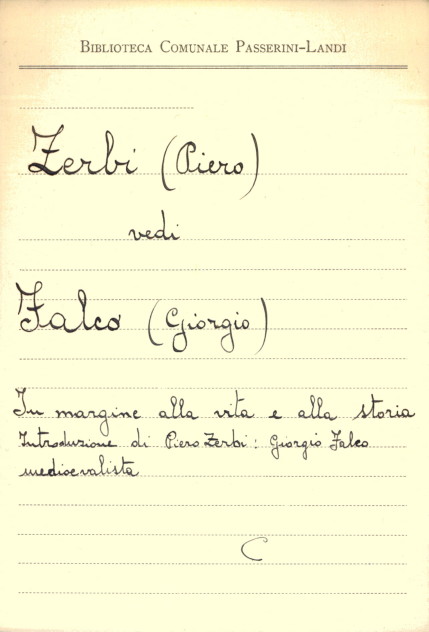 Biblioteca Comunale Passerini-Landi
Zerbi (Piero)
vedi
Falco (Giorgio)
In margine alla vita e alla storia
Introduzione di Piero Zerbi: Giorgio Falco
medioevalista
C